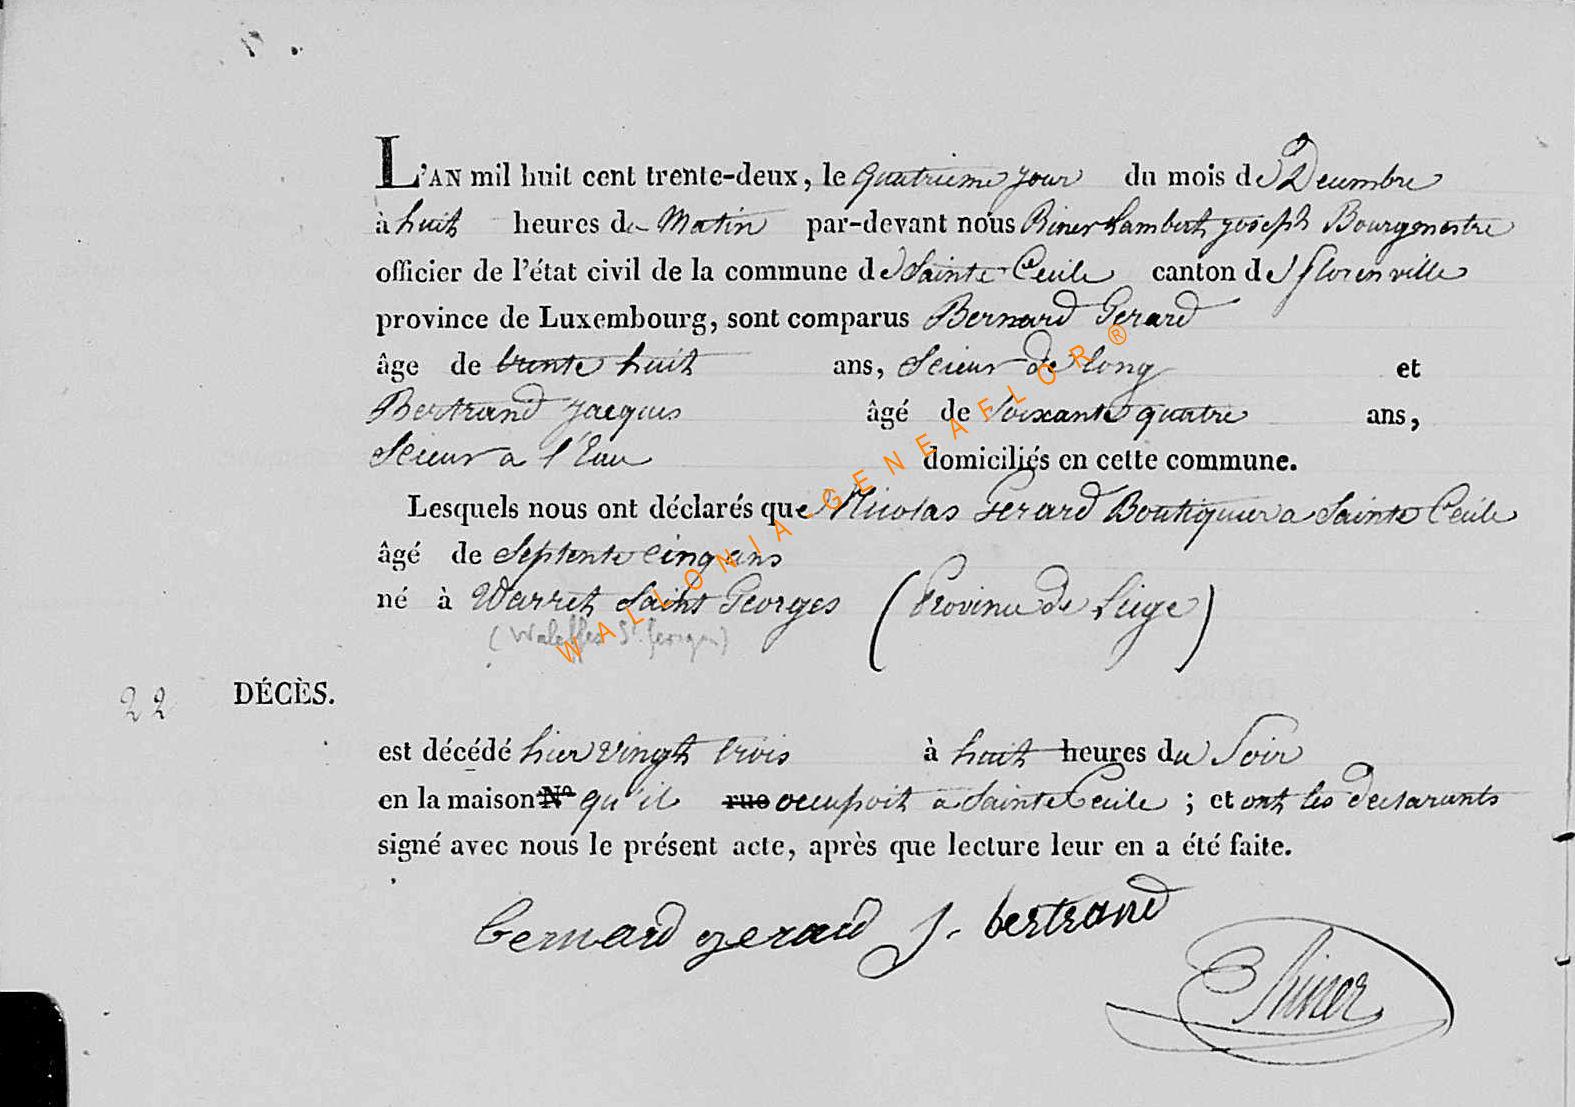 L'AN mil huit cent trente-deux, le quatrieme jour du mois de Decembre
à huit heures du Matin par-devant nous Riner Lambert joseph Bourgmestre
officier de l'état civil de la commune de Sainte Cecile canton de florenville
province de Luxembourg, sont comparus Bernard Gerard
âge de trente huit ans, Scieur de long et
Bertrand jacques âgé de soixante quatre ans,
Scieur a l'Eau domiciliés en cette commune.
Lesquels nous ont déclarés que Nicolas Gerard Boutiquier a Sainte Cecile
âgé de Septente cinq ans
né à Warret Saint Georges (Province de Liege)
(Waleffes St Georges)
22 DÉCÈS.
est décédé hier vingt trois à huit heures du Soir
en la maison No qu'il rue occupoit a Sainte Cecile ; et ont les declarants
signé avec nous le présent acte, après que lecture leur en a été faite.
bernard gerard J. bertrand
Riner
WALLONIA-GENEAFLOR®